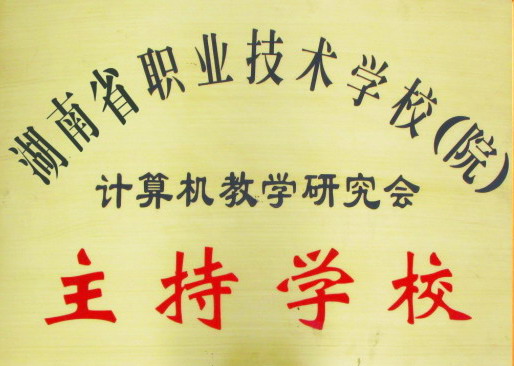 湖南省职业技术学校(院)
计算机教学研究会
主持学校